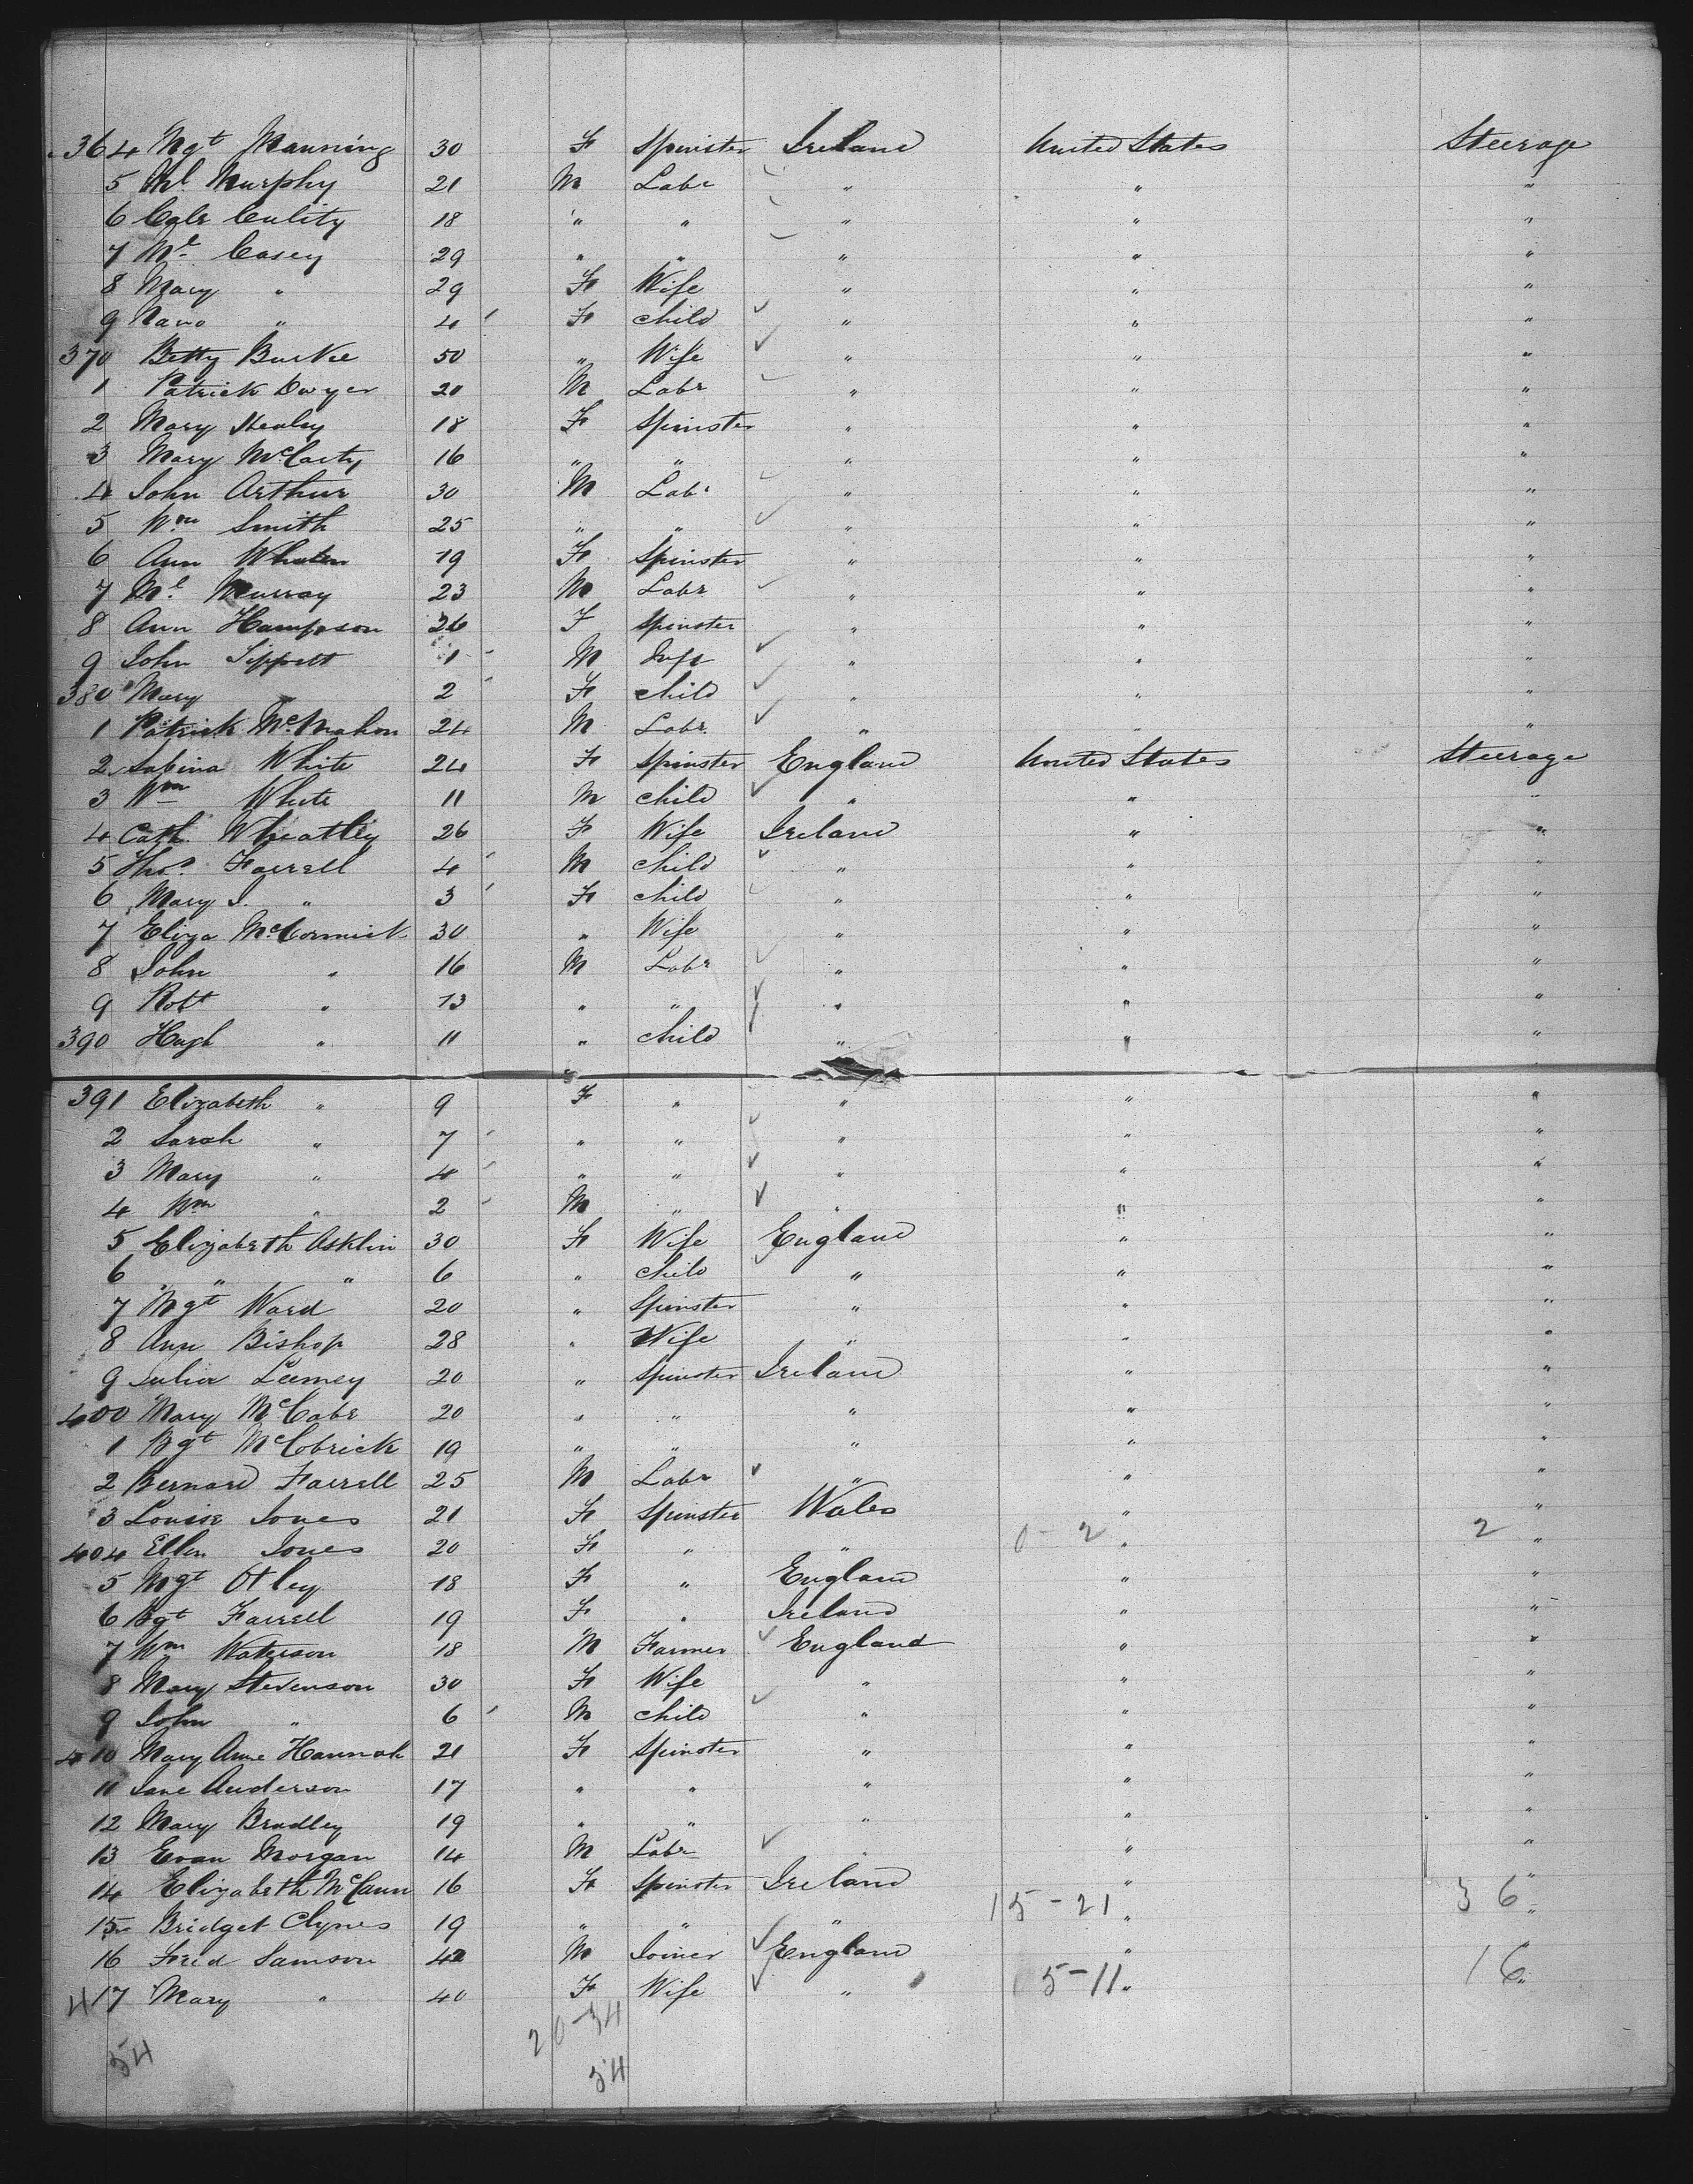 364 Mgt Manning 30 F Spinster Ireland United States Steerage
5 Ml Murphy 21 M Labr " " "
6 Culity 18 " " " " "
7 Ml Casey 29 " " " " "
8 Mary " 29 F Wife " " "
9 Nano " 4 F child " " "
370 Betty Burke 50 " Wife " " "
1 Patrick Dwyer 20 M Labr " " "
2 Mary Healey 18 F Spinster " " "
3 Mary McCarty 16 " " " " "
4 John Arthur 30 M Labr " " "
5 Wm Smith 25 " " " " "
6 Ann Whalen 19 F Spinster " " "
7 Ml Murray 23 M Labr " " "
8 Ann Hampson 26 F Spinster " " "
9 John Sippett 1 M Inft " " "
380 Mary 2 F child " " "
1 Patrick McMahon 24 M Labr " " "
2 Sabina White 24 F Spinster England United States Steerage
3 Wm White 11 M child " " "
4 Cath. Wheatley 26 F Wife Ireland " "
5 Thos. Farrell 4 M child " " "
6 Mary J. " 3 F child " " "
7 Eliza McCormick 30 " Wife " " "
8 John " 16 M Labr " " "
9 Robt " 13 " " " " "
390 Hugh " 11 " child " " "
391 Elizabeth " 9 F " " " "
2 Sarah " 7 " " " " "
3 Mary " 4 " " " " "
4 Wm " 2 M " " " "
5 Elizabeth Asklin 30 F Wife England " "
6 " " 6 " child " " "
7 Mgt Ward 20 " Spinster " " "
8 Ann Bishop 28 " Wife " " "
9 Julia Leemey 20 " Spinster Ireland " "
400 Mary McCabe 20 " " " " "
1 Bgt McCobrick 19 " " " " "
2 Bernard Farrell 25 M Labr " " "
3 Louise Jones 21 F Spinster Wales " "
404 Ellen Jones 20 F " " 0-2 " 2 "
5 Mgt Otley 18 F " England " "
6 Bgt Farrell 19 F " Ireland " "
7 Wm Waterson 18 M Farmer England " "
8 Mary Stevenson 30 F Wife " " "
9 John " 6 M child " " "
410 Mary Anne Hannah 21 F Spinster " " "
11 Jane Anderson 17 " " " " "
12 Mary Bradley 19 " " " " "
13 Evan Morgan 14 M Labr " " "
14 Elizabeth McCann 16 F Spinster Ireland " "
15 Bridget Clynes 19 " " " 15-21 " 36 "
16 Fred Samson 42 M Joiner England " "
417 Mary " 40 F Wife " 5-11 " 16 "
54 20-34
54